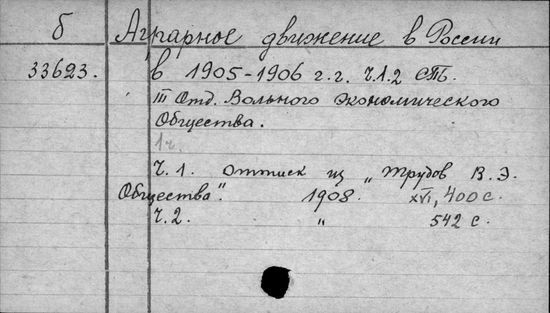 б Аграрное движение в России
33623. в 1905-1906 г.г. Ч.1.2 СПб.
III Отд. Вольного Экономического
Общества.
1ч.
Ч.1. Оттиск из „Трудов В.Э.
Общества". 1908. XVI, 400 с.
Ч.2. „ 542 с.